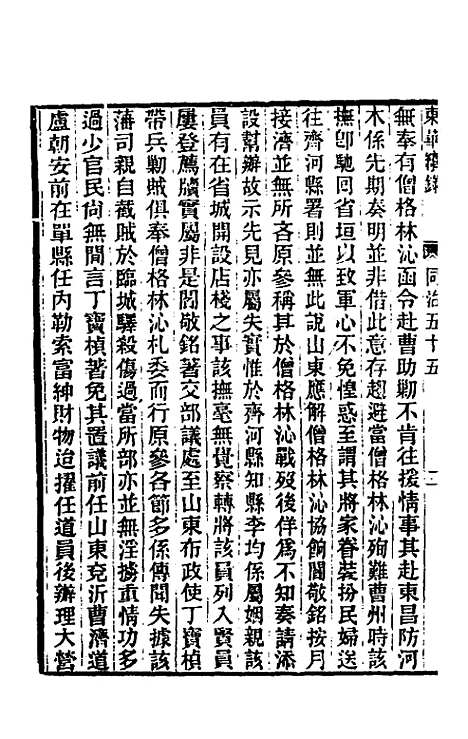 東華續錄 同治五十五 二
無奉有僧格林沁函令赴曹助勦不肯往援情事其赴東昌防河
木係先期奏明並非借此意存趨避當僧格林沁殉難曹州時該
撫卽馳回省垣以致軍心不免惶惑至謂其將家眷裝扮民婦送
往齊河縣署則並無此說山東應解僧格林沁協餉閻敬銘按月
接濟並無所吝原參稱其於僧格林沁戰歿後佯爲不知奏請添
設幫辦故示先見亦屬失實惟於齊河縣知縣李均係屬姻親該
員有在省城開設店棧之事該撫毫無覺察轉將該員列入賢員
屢登薦牘實屬非是閻敬銘著交部議處至山東布政使丁寶楨
帶兵勦賊俱奉僧格林沁札委而行原參各節多係傳聞失據該
藩司親自截賊於臨城驛殺傷過當所部亦並無淫擄重情功多
過少官民尙無間言丁寶楨著免其置議前任山東兗沂曹濟道
盧朝安前在單縣任內勒索富紳財物迨擢任道員後辦理大營